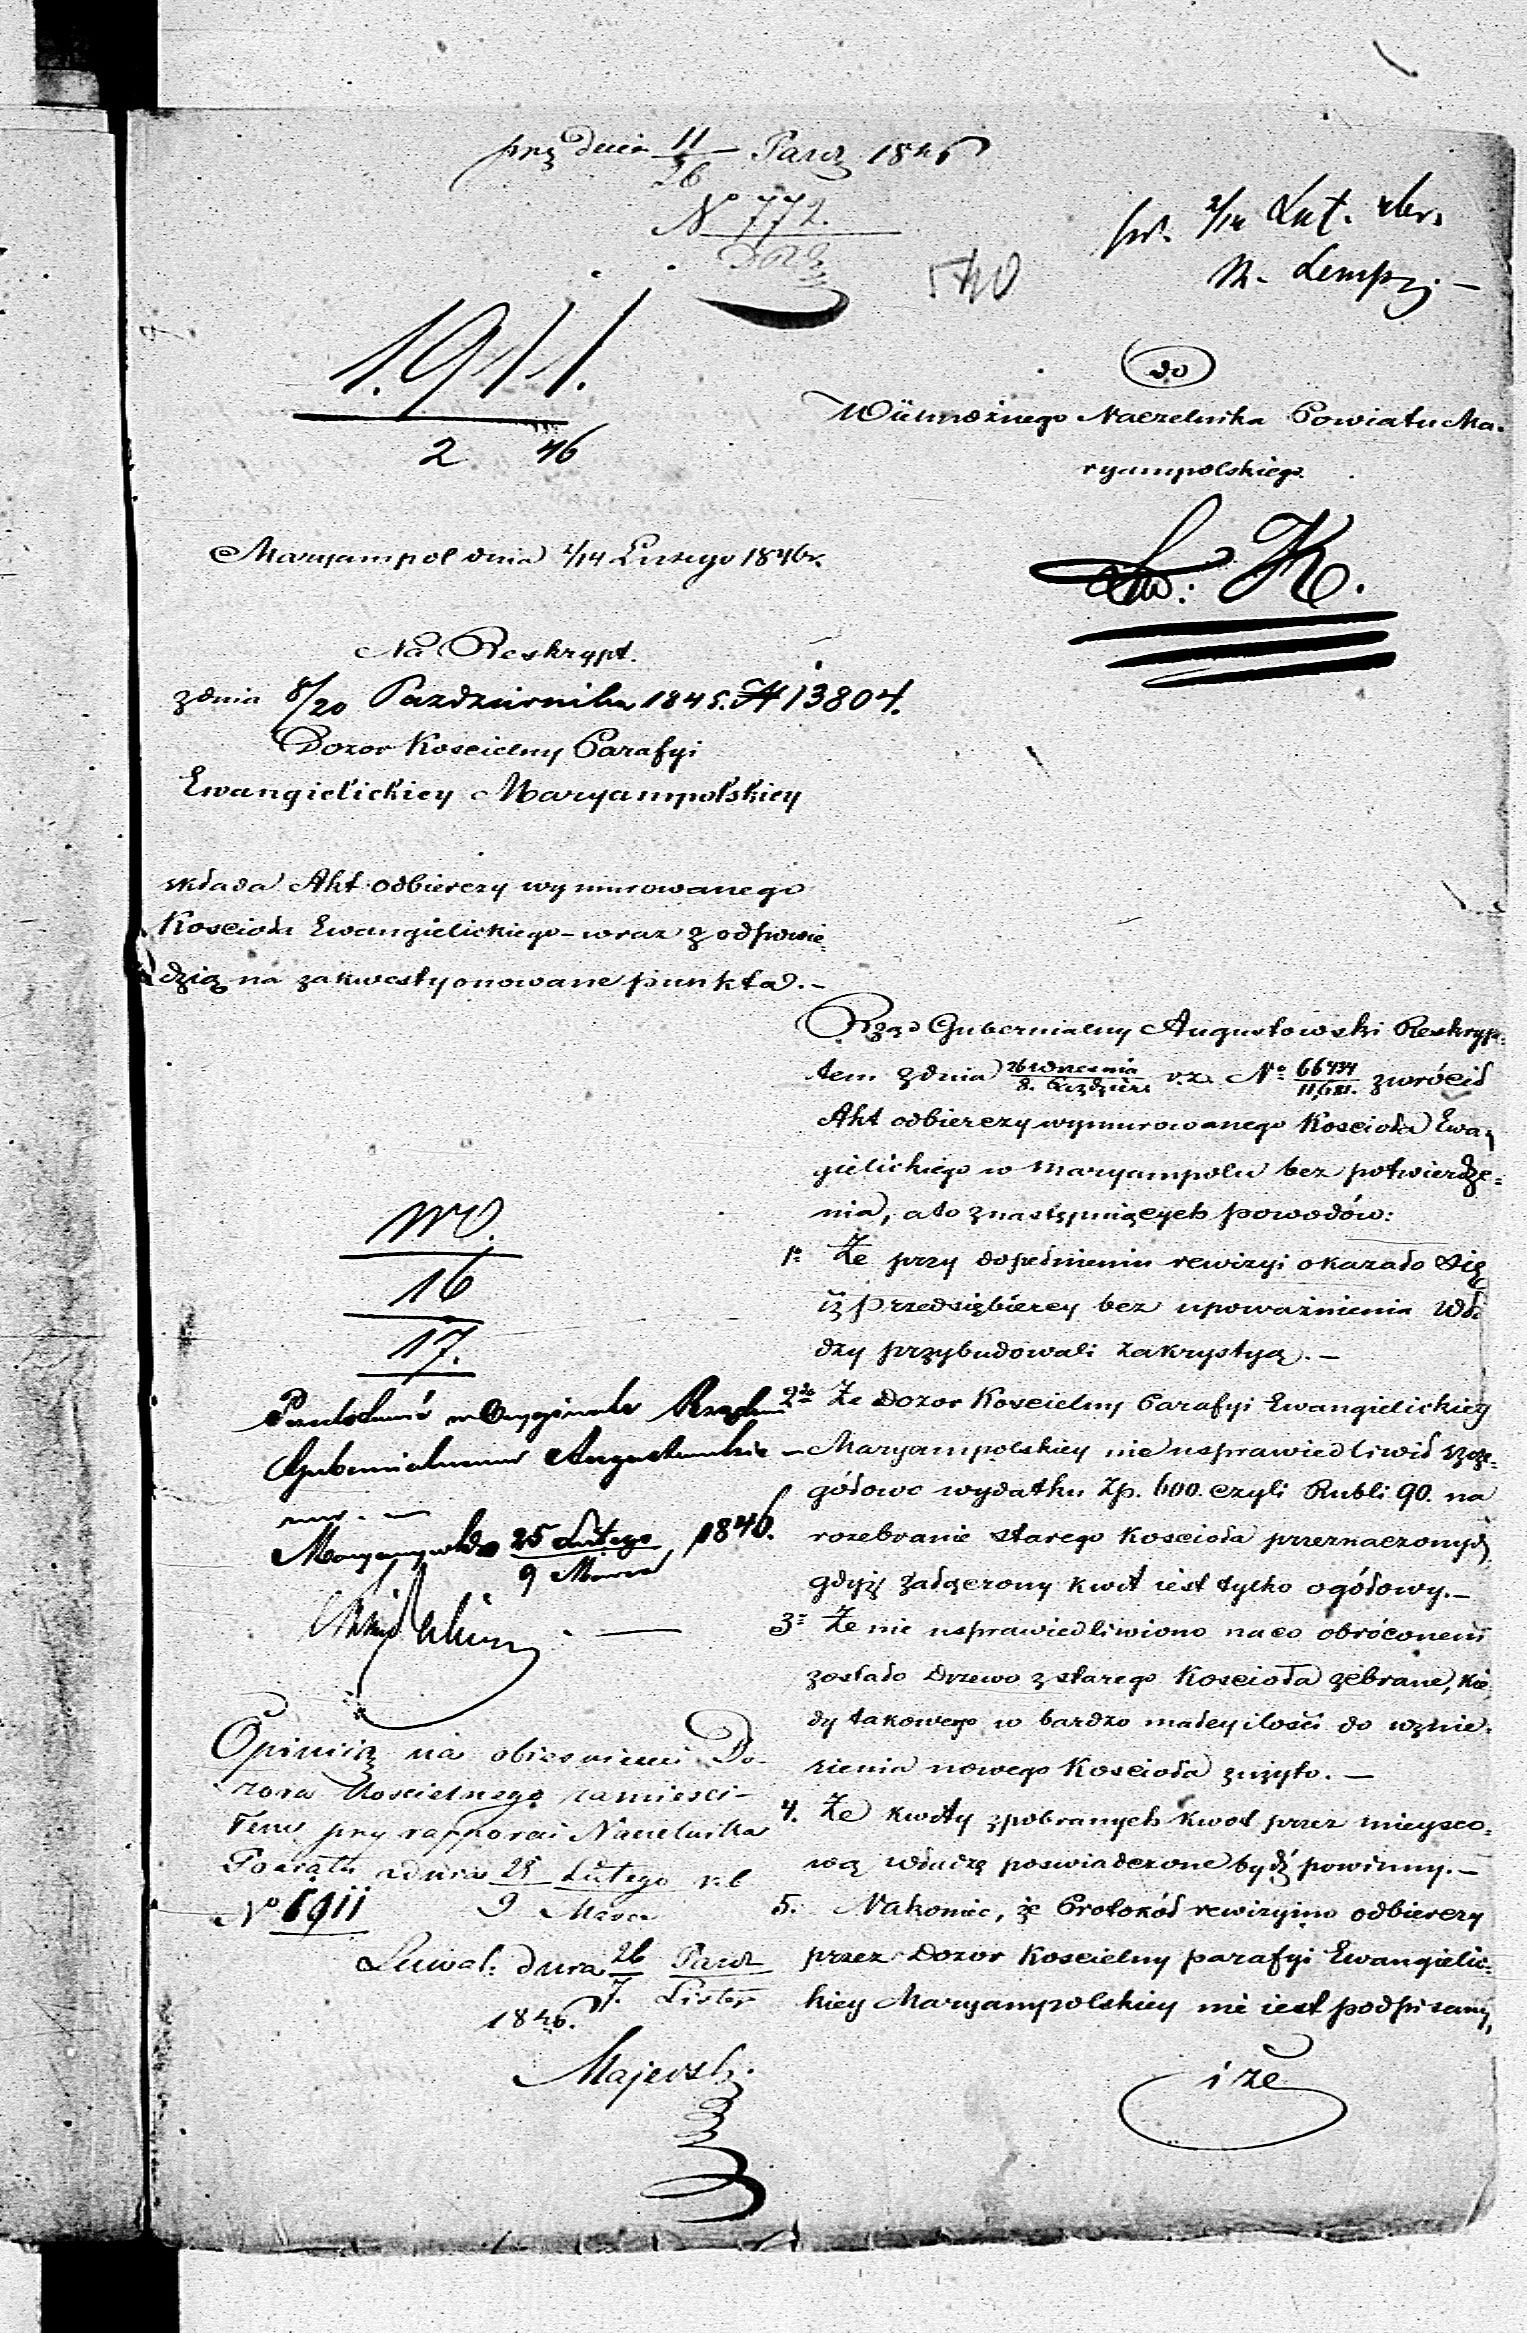 prz dnia 11/26 Paźd 1846
No 772.
540
pr. 2/14 Lut. 46 r.
1.911.
2 46
do
Wielmożnego Naczelnika Powiatu Ma-
ryampolskiego.
Maryampol dnia 2/14 Lutego 1846 r.
Na Reskrypt.
z dnia 8/20 Pazdziernika 1845. N 13804.
Dozor Koscielny Parafyi
Ewangielickiey Maryampolskiey
składa Akt odbierczy wymurowanego
Koscioła Ewangielickiego – wraz z odpowie-
dzią na zakwestyonowane punkta. –
Rząd Gubernialny Augustowski Reskryp-
tem z dnia 26 Wrzesnia / 8. Pazdzier v.z. No 66434 / zwrócił
Akt odbierczy wymurowanego Koscioła Ewan
gielickiego w Maryampolu bez potwierdze-
nia, a to z następuiących powodów:
1o Że przy dopełnieniu rewizyi okazało się
iż przedsiębiercy bez upoważnienia Wła
dzy przybudowali zakrystyą. –
2o Że Dozor Koscielny Parafyi Ewangielickiey
Maryampolskiey nie usprawiedliwił szcze-
gółowo wydatku Zp. 600. czyli Rubli 90. na
rozebranie starego Koscioła przeznaczonych,
gdyż załączony kwit iest tylko ogółowy. –
3o Że nie usprawiedliwiono na co obróconem
zostało Drzewo z starego Koscioła zebrane, kie
dy takowego w bardzo małey ilości do wznie-
sienia nowego Koscioła zużyto. –
4. Że kwity z pobranych kwot przez mieysco-
wą władzę poswiadczone bydź powinny. –
5. Nakoniec, że Protokół rewizyino odbierczy
przez Dozor Koscielny parafyi Ewangielic-
kiey Maryampolskiey nie iest podpisany,
i że
16
17.
Przedstawić w Oryginale Rządowi
Gubernialnemu Augustowskie-
mu. –
Maryampol d 25 Lutego / 9 Marca 1846.
Opinią na obiasnienie Do-
zoru Koscielnego zamiesci-
łem przy rapporcie Naczelnika
Powiatu z dnia 25 Lutego / 9 Marca r.b
No 1911
Suwał: dnia 26 Pazd / 7. Listop
1846.
Majewsk